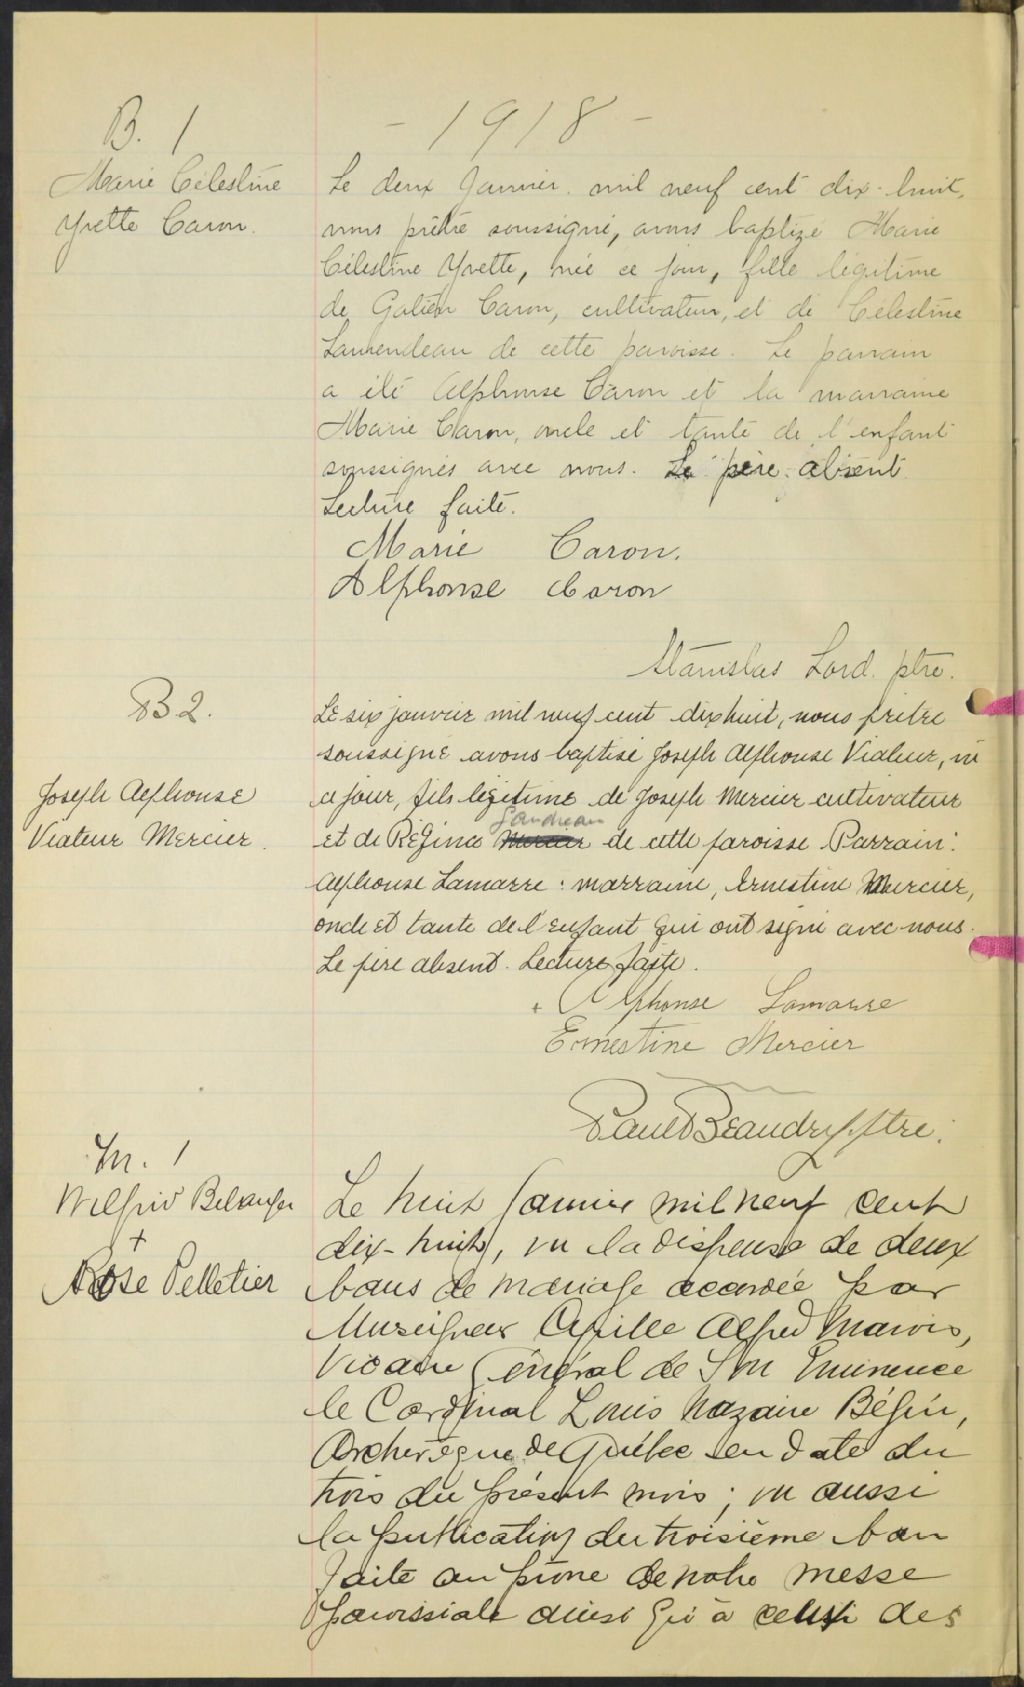 - 1918 -
B. 1
Marie Célestine
Yvette Caron.
Le deux Janvier mil neuf cent dix-huit,
nous prêtre soussigné, avons baptizé Marie
Célestine Yvette, née ce jour, fille légitime
de Galien Caron, cultivateur, et de Célestine
Lamendeau de cette paroisse. Le parrain
a été Alphonse Caron et la marraine
Marie Caron, oncle et tante de l'enfant
soussignés avec nous. Le père absent
Lecture faite.
Marie Caron.
Alphonse Caron
Stanislas Lord. ptre.
B 2.
Joseph Alphonse
Viateur Mercier.
Le six janvier mil neuf cent dix huit, nous prêtre
soussigné avons baptisé Joseph Alphonse Viateur, né
ce jour, fils légitime de Joseph Mercier cultivateur
et de Régina Mercier Gaudreau de cette paroisse Parrain:
Alphonse Lamarre: marraine, Ernestine Mercier,
oncle et tante de l'enfant qui ont signé avec nous.
Le père absent. Lecture faite.
+ Alphonse Lamarre
Ernestine Mercier
Paul Beaudry ptre.
M. 1
Wilfrid Belanger
+
Rose Pelletier
Le huit Janvier mil neuf cent
dix-huit, vu la dispense de deux
bans de mariage accordée par
Monseigneur Cyrille Alfred Marois,
Vicaire Général de Son Eminence
le Cardinal Louis Nazaire Bégin,
Archevêque de Québec en date du
trois du présent mois; vu aussi
la publication du troisième ban
faite au prône de notre messe
paroissiale ainsi qu'à celui des